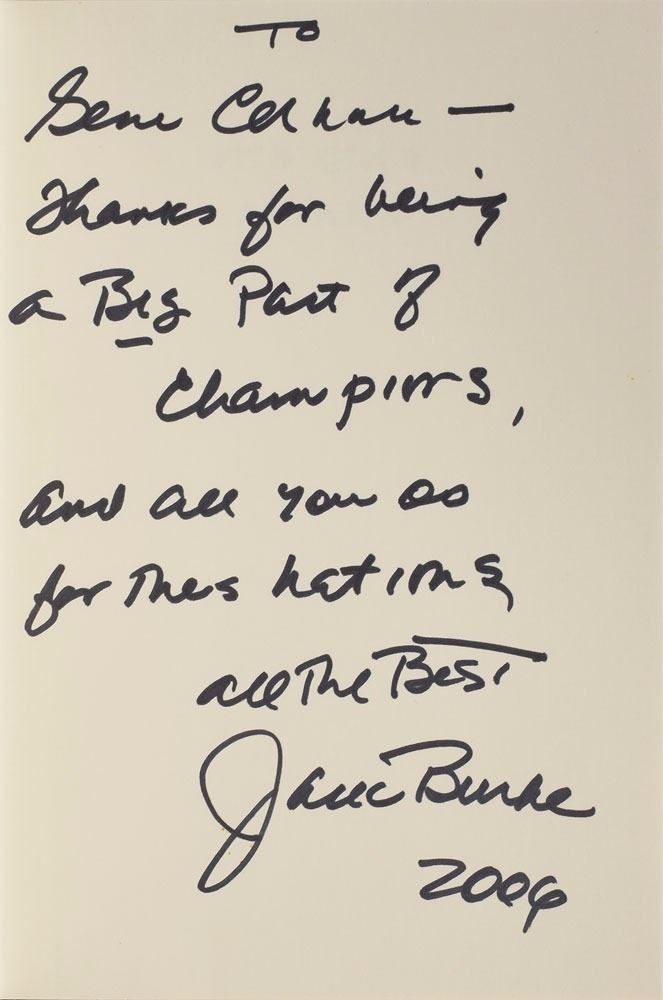 To
Gene Cernan —
Thanks for being
a Big Part of
Champions,
and all you do
for This nation
all The Best
Jack Burke
2006